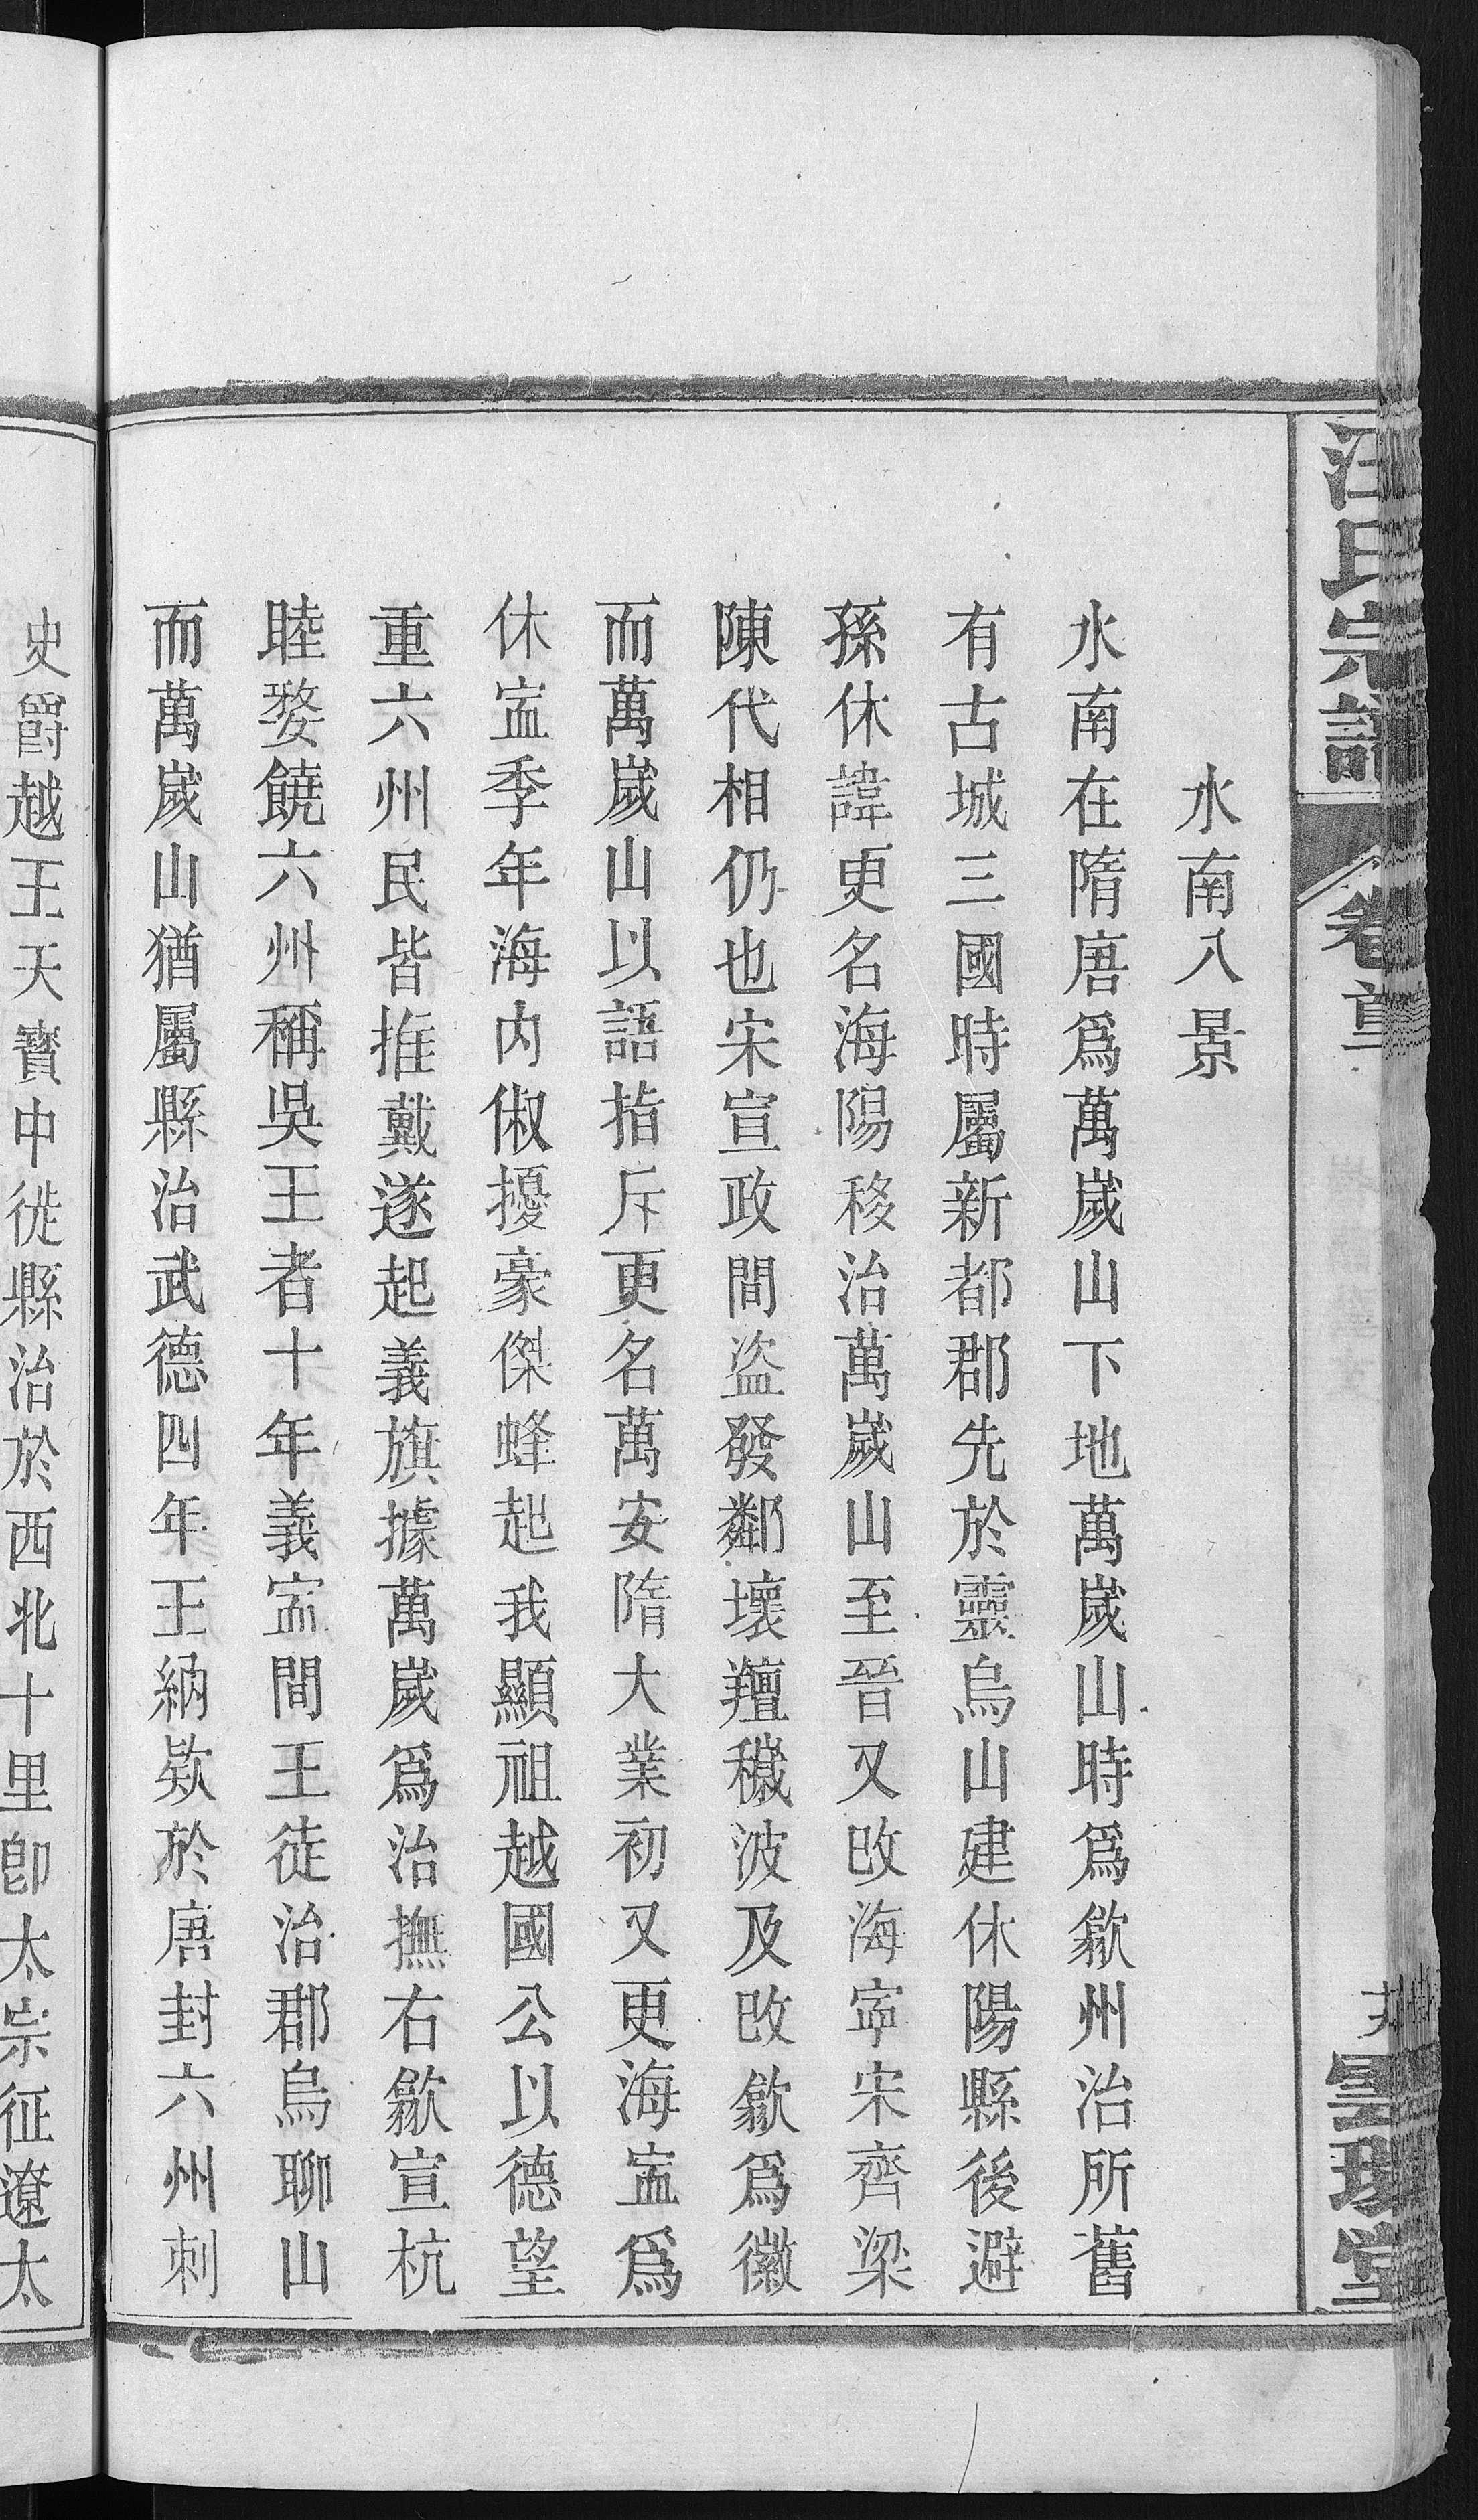 汪氏宗譜
卷首
雲環堂
水南八景
水南在隋唐爲萬歲山下地萬歲山時爲歙州治所舊
有古城三國時屬新都郡先於靈烏山建休陽縣後避
孫休諱更名海陽移治萬歲山至晉又改海寧宋齊梁
陳代相仍也宋宣政間盜發鄰壤羶穢波及改歙爲徽
而萬歲山以語指斥更名萬安隋大業初又更海寍爲
休寍季年海内俶擾豪傑蜂起我顯祖越國公以德望
重六州民皆推戴遂起義旗據萬歲爲治撫右歙宣杭
睦婺饒六州稱吳王者十年義寍間王徙治郡烏聊山
而萬歲山猶屬縣治武德四年王納欵於唐封六州刺
史爵越王天寳中徙縣治於西北十里卽太宗征遼太